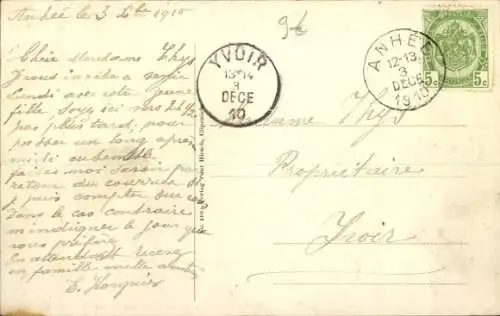 Anhée le 3 Xbre 1910
Chère Madame Thys
Je vous invite à
Lundi avec votre jeune
fille, Soyez ici vers 2 h 1/2
pas plus tard, pour
passer un long après
midi ensemble
faites moi savoir par
retour du courrier si
je puis compter
dans le cas contraire
m'indiquer le jour que
vous préférez
En attendant recevez
en famille mille
E.
9€
YVOIR
13-14
3
DECE
10
ANHÉE
12-13
3
DECE
1910
5c 5c
Madame Thys
Propriétaire
Yvoir